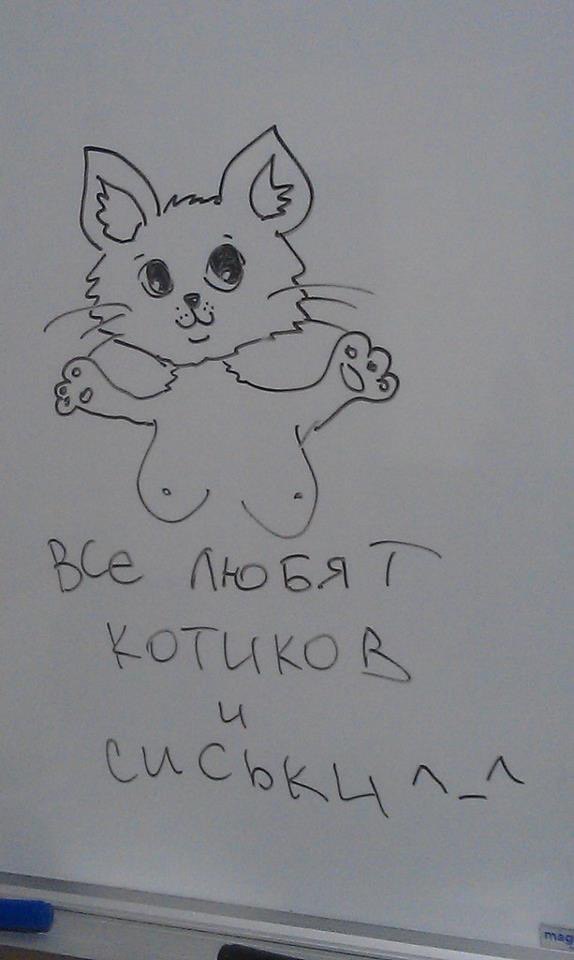 все любят
котиков
и
сиськи ^_^
mag